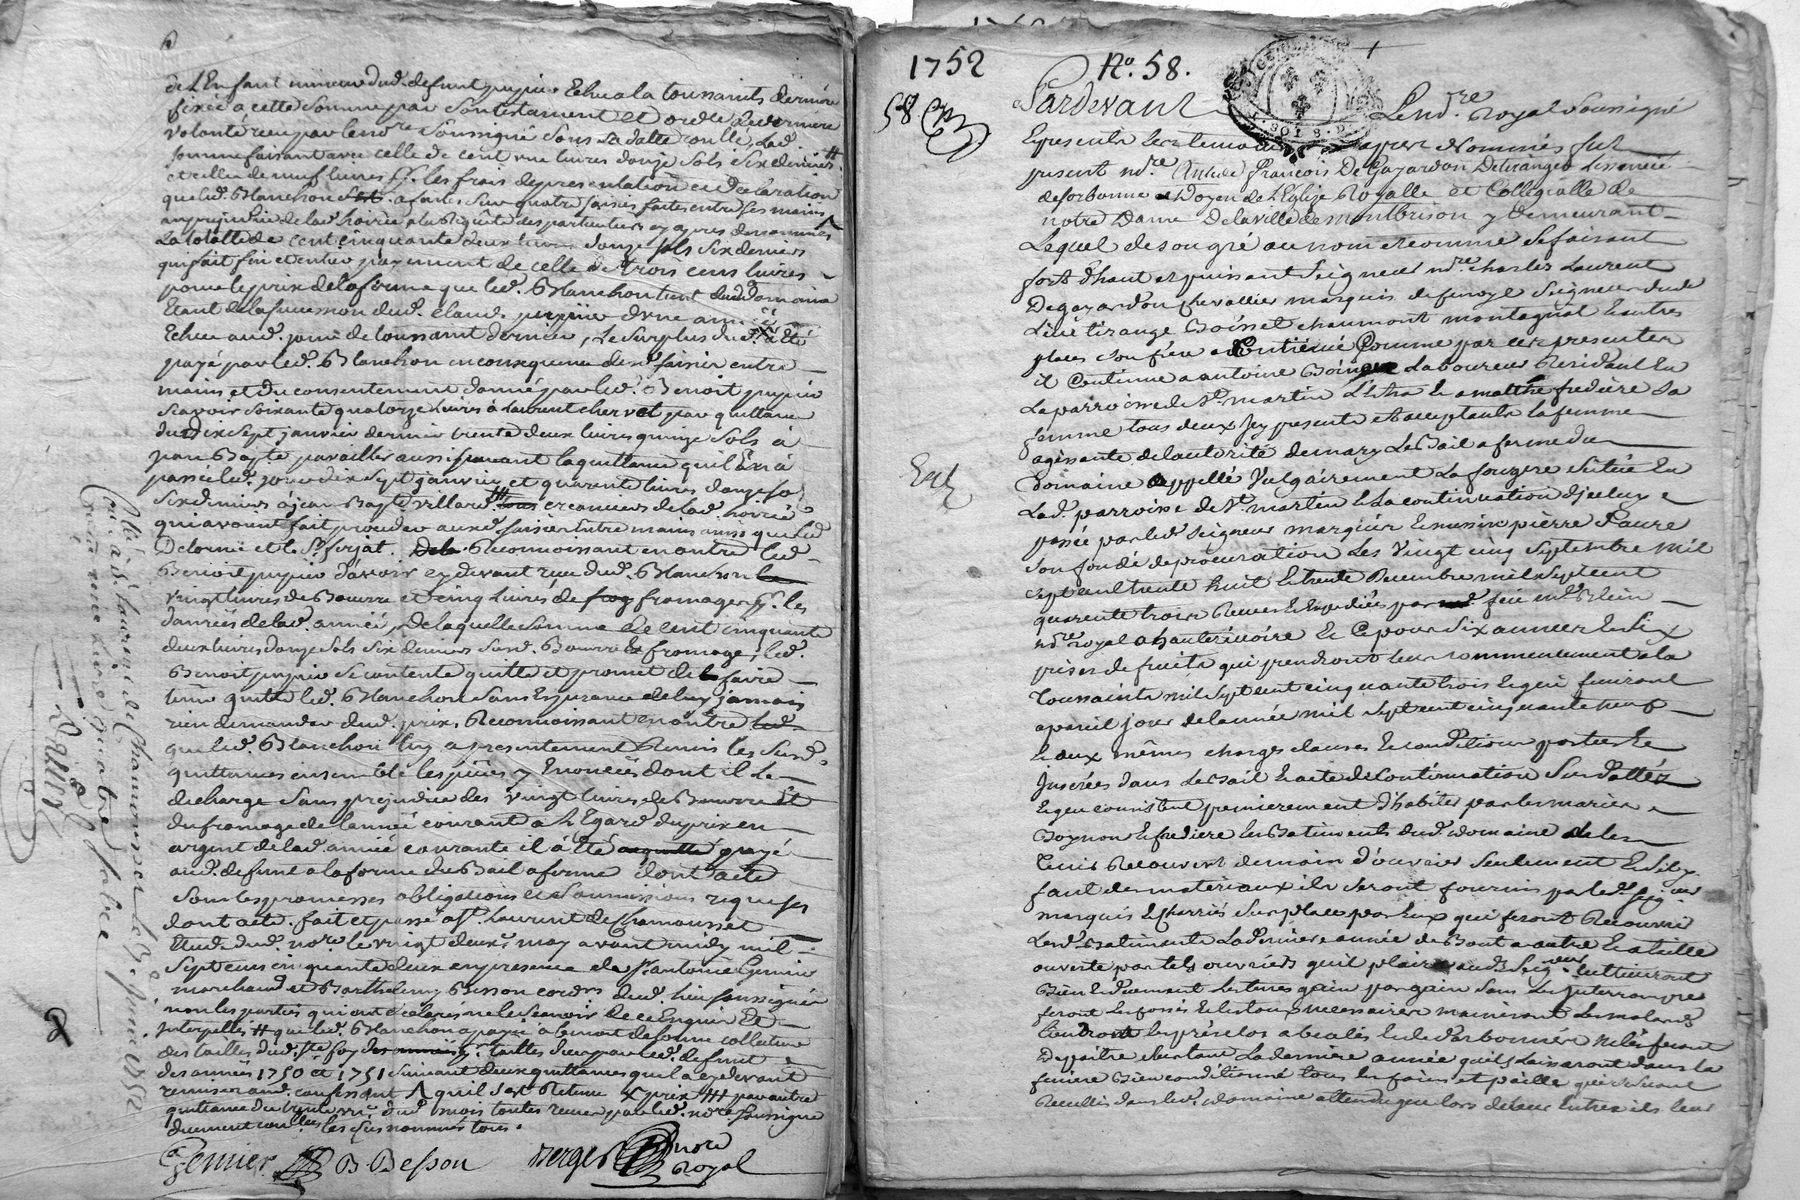 de L'Enfant mineur dud. defunt pupier Echue a la toussaints derniere
fixée a cette somme par son testament et ordre de derniere
volonté reçu par le no.re soussigné sous sa datte conllé, Lad.
somme faisant avec celle de cent une livres douze sols six deniers #
et celle de neuf livres pr. les frais de presentation et declaration
que led. Blanchon a faites sur quatre saisies faites entre ses mains
au prejudice de lad. hoirie a la Requête des particuliers cy apres denommés
La totalle de cent cinquante deux livres douze sols six deniers
qui fait fin et entier payement de celle de trois cens livres
pour le prix de la ferme que led. Blanchon tient dud. Domaine
Etant de la succession dud. Claud. pupier d'une année
Echue aud. jour de toussaint dernier, Le surplus du a été
payé par led. Blanchon en consequence desd. saisies entre
mains et du consentement donné par led. Benoit pupier
scavoir soixante quatorze livres à Laurent chervet par quittance
du dix sept janvier dernier trente deux livres quinze sols à
jean Bap.te aussi suivant la quittance qu'il luy a
passé led. jour dix sept janvier, et quarente livres douze so
six deniers à jean Bap.te villard creanciers de lad. hoirie
qui avoient fait proceder auxd. saisies entre mains ainsi que led
Delorme et le Sr. forjat. Reconnoissant en outre led.
Benoit pupier d'avoir cy devant reçu dud. Blanchon
vingt livres de Beurre et cinq livres de fromage pr. les
danrées de lad. année, De laquelle somme de cent cinquante
deux livres douze sols six deniers sus d. Beurre et fromage, led.
Benoit pupier se contente quitte et promet de faire
tenir quitte led. Blanchon sans Esperance de luy jamais
rien demander dud. prix, Reconnoissant en outre
que led. Blanchon luy a presentement Remis les susd.
quittances ensemble les pieces y Enoncées dont il le
decharge sans prejudice des vingt livres de Beurre et
du fromage de l'année courante a l'Egard du prix en
argent de lad. année courante il à été payé
aud. defunt a la forme du Bail a ferme dont acte
sous les promesses obligations et soumissions requises
dont acte. fait et passé à St. Laurent de Chamousset
Etude dud. no.re le vingt deux may avant midy mil
sept cens cinquante deux en presence de Sr. antoine Gemier
marchand et Barthelemy Besson cord.r dud. lieu soussignés
non les parties qui ont declaré ne le scavoir de ce Enquis et
Interpellés # que led. Blanchon a payé a benoit delorme collecteur
des tailles dud. ste foy pr. tailles deues par led. defunt
des années 1750 et 1751 suivant deux quittances qu'il a cy devant
remises aud. confessant qu'il s'est Retenu prix par autre
quittance du trente un dud. mois toutes reçues par led. no.re soussigné
duement conllées les susnommés tous.
Gemier B. Besson Berger no.re
Royal
Cllé à St. Laurin de Chamousset le 3e juin 1752
1752 No. 58.
58.
Pardevant Le no.re Royal soussigné
Et presents les temoins apres Nommés fut
present m.re François De Gayardon De tiranges Licencié
de sorbonne Doyen de L'Eglise Royalle et Collegialle de
notre Dame De la ville de montbrison y demeurant
Lequel de son gré au nom et comme se faisant
fort d'haut et puissant seigneur m.re charles Laurent
De gayardon chevallier marquis de fenoyl Seigneur dud
Lieu tirange Boisset chaumont montagnat et autres
places son frere a Continué Comme par ces presentes
il Continue a antoine Laboureur Residant En
La parroisse de St. martin L'Estra et a matthie fredière sa
femme tous deux Icy presents et acceptants la femme
agissante de l'autorité de mary Le Bail a ferme du
Domaine appellé Vulgairement La fougere située En
Lad. parroisse de St. martin Et La continuation d'jceluy
passée par led. Seigneur marquis Et messire pierre Faure
son fondé de procuration Les vingt cinq septembre mil
sept cent trente huit Et trente Decembre mil sept cent
quarente trois Reçues Et Expediées par feu m.e
no.re royal a hauterivoire Et Ce pour six années Et six
prises de fruits qui prendront leur commencement a la
Toussaints mil sept cent cinquante trois Et qui finiront
a pareil jour de l'année mil sept cent cinquante neuf
Et aux mêmes charges clauses Et conditions portées Et
Inserées dans Le Bail Et acte de Continuation Sus dattés
Et qui consistent premierement d'habiter par les mariés
Et fredière les Batiments dud. domaine de les
Tenir Recouvert de main d'ouvrier seulement Et s'il y
faut des materiaux ils seront fournis par led. seig.eur
marquis Et Charriés sur place par Eux qui feront Recouvrir
Lesd. Batiments La derniere année de Bout a autre Et a taille
ouverte par tels ouvriers qu'il plaira aud. Seig.eur cultiveront
Bien Et Duement Les terres gain par gain sans Les Interrompre
feront Les fossés Et les necessaires
tiendront les prés clos
Depaitre La derniere année qu'ils Laisseront dans la
feniere Bien conditionné tous les foins et paille qui se seront
Recueillis dans led. domaine attendu que lors de leur Entrée ils leur